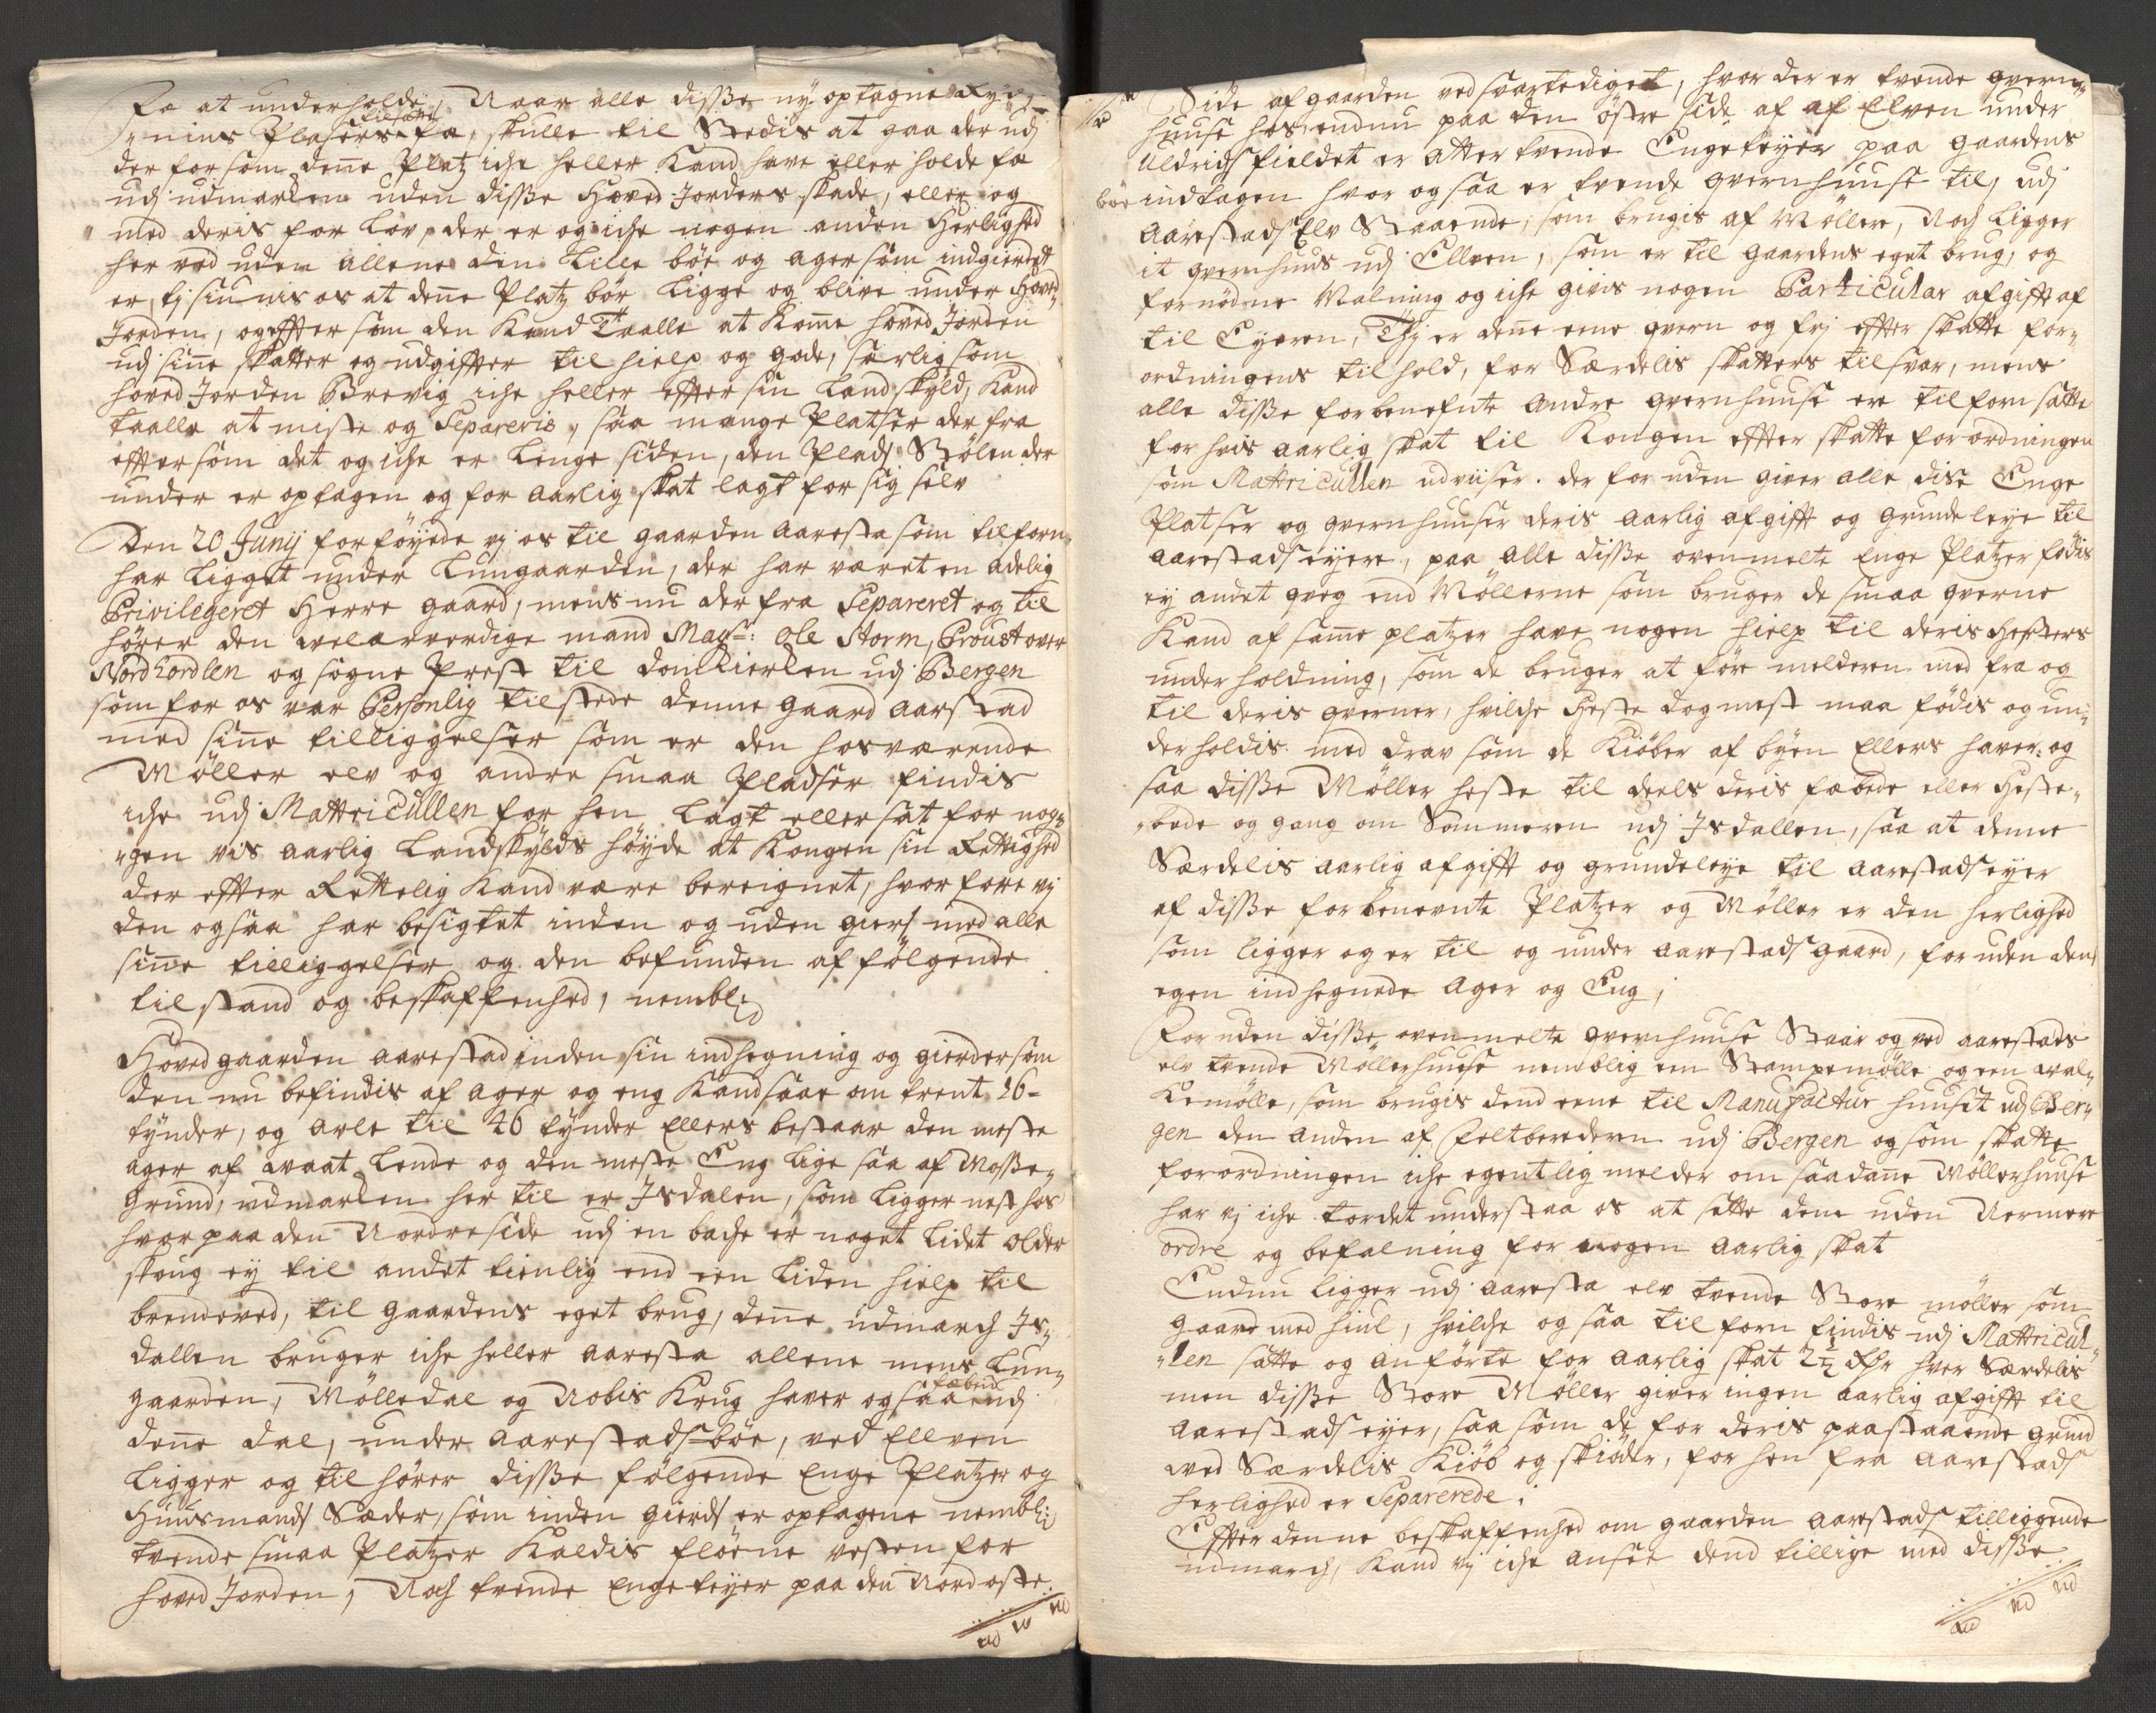 fæ at underholde, Naar alle disse ny optagne Ryd-
nings Plasers fæ, skulle til Stedis at gaa der udj
tilsatte
der for som denne Platz iche heller Kand have eller holde fæ
udj udmarken uden disse Hoved Jorders skade, eller og
med deris for Lov, der er og iche nogen anden Herlighed
her ved uden allene den Lille böe og ager som indgierdet
er, tj siunis os at denne Platz bör Ligge og blive under Hoved
Jorden, og effter som den Kand Taalle at Komme hoved Jorden
udj sine skatter og udgiffter til hielp og gode, særlig som
hoved Jorden Brevig iche heller effter sin Landskyld, Kand
taalle at miste og Separeris, saa mange Platser der fra
effter som det og iche er Lenge siden, den Plads Stölen der
under er optagen og for aarlig skat lagt for sig selv
Den 20 Junij forföyede vj os til gaarden aaresta som tilforn
har Ligget under Lungaarden, der har været en adelig
Privilegeret Herre gaard, mens nu der fra Separeret og til
hörer den velærverdige mand Magr: Ole Storm, Proust over
Nordhordlen og sogne Prest til domkierken udj Bergen
som for os var Personlig tilstede denne gaard aarstad
med sine tilliggelser som er den hosværende
Möller elv og andre smaa Pladser findis
iche udj Mattricullen for hen Lagt eller sat for nog-
gen vis aarlig Landskylds höyde at Kongen sin Rettighed
der effter Rettelig Kand være bereignet, hvor fore vj
den ogsaa har besigtet inden og uden giers med alle
sine tilliggelser og den befunden af fölgende
tilstand og beskaffenhed, nembl:
Hovedgaarden aarestad inden sin indhegning og gierder som
den nu befindis af ager og eng Kand saae omtrent 16-
tynder, og avle til 46 tynder Ellers bestaar den meste
ager af vaat Lende og den meste Eng lige saa af Mosse-
grund, udmarken her til er Isdalen, som Ligger nest hos
hvor paa den Nordre side udj en bache er noget Lidet older
skoug ey til andet tienlig end een Liden hielp til
brendeved, til gaardens eget brug, denne udmarch Is-
dallen bruger iche heller aaresta allene mens Lun-
gaarden, Mölledal og Nobis Krug haver ogsaa udj
fæbeed
denne dal, under aarestads böe, ved Elven
Ligger og tilhörer disse fölgende Enge Platzer og
Huusmands Sæder, som inden gierds er optagene nembl:
tvende smaa Platzer Kaldis flöene vesten for
hoved Jorden, Noch tvende Enge teyer paa den Nordoste
Side af gaarden ved svartediget, hvor der er tvende qvern-
huuse hos, endnu paa den östre side af af Elven under
Uldrichsfieldet er atter tvende Engeteyer paa gaardens
böe indtagen hvor og saa er tvende qvernhuuse til, udj
aarestads Elv Staaende, som brugis af Möllere, Noch Ligger
it qvernhuus udj Ellven, som er til gaardens eget brug, og
fornödne Malning og iche givis nogen Particular afgifft af
til Eyeren, Thj er denne eene qvern og frj effter skatte for-
ordningens tilhold, for Særdelis skatters tilsvar, mens
alle disse forbenefnte andre qvernhuuse ere tilforn satte
for hvis aarlig skat til Kongen effter skatte forordningen
som Mattricullen udviiser. der foruden giver alle dise Enge
Platser og qvernhuuser deris aarlig afgifft og grundeleye til
aarestads eyere, paa alle disse ovenmelte Enge Platzer födis
ey andet qveg end Möllerne som bruger de smaa qverne
Kand af samme platzer have nogen hielp til deris Hesters
underholdning, som de bruger at före melderen med fra og
til deris qverner, hvilche Heste dog mest maa födis og un-
derholdis med drav som de Kiöber af byen Ellers haver og
saa disse Möller heste til deels deris fæbede eller Heste-
bede og gang om Sommeren udj Isdallen, saa at denne
Særdelis aarlig afgifft og grundeleye til aarestads eyer
af disse forbenevnte Platzer og Möller er den herlighed
som ligger og er til og under aarestads gaard, foruden dens
egen indhegnede ager og Eng,
Foruden disse ovenmelte qvernhuuse Staar og ved aarestads
elv tvende Möllerhuuse nemblig een Stampemölle og een val-
kemölle, som brugis dend eene til Manufactur huuset udj Ber-
gen den anden af Feltberederen udj Bergen og som skatte
forordningen iche egentlig melder om saadane Möllerhuuse
har vj iche tordet understaa os at sette dem uden Nermere
ordre og befalning for nogen aarlig skat
Endnu Ligger udj aaresta elv tvende Store möller som
gaar med hiul, hvilche og saa tilforn findis udj Mattricul-
len satte og anförte for aarlig skat 2½ Rdr hver Særdelis
men disse Store Möller giver ingen aarlig afgifft til
aarestads eyer, saa som de for deris paastaaende grund
ved Særdelis Kiöb og skiöder, for hen fra aarestads
herlighed er Separerede,
Effter denne beskaffenhed om gaarden aarestads tilliggende
udmarch, Kand vj iche ansee dend tillige med disse